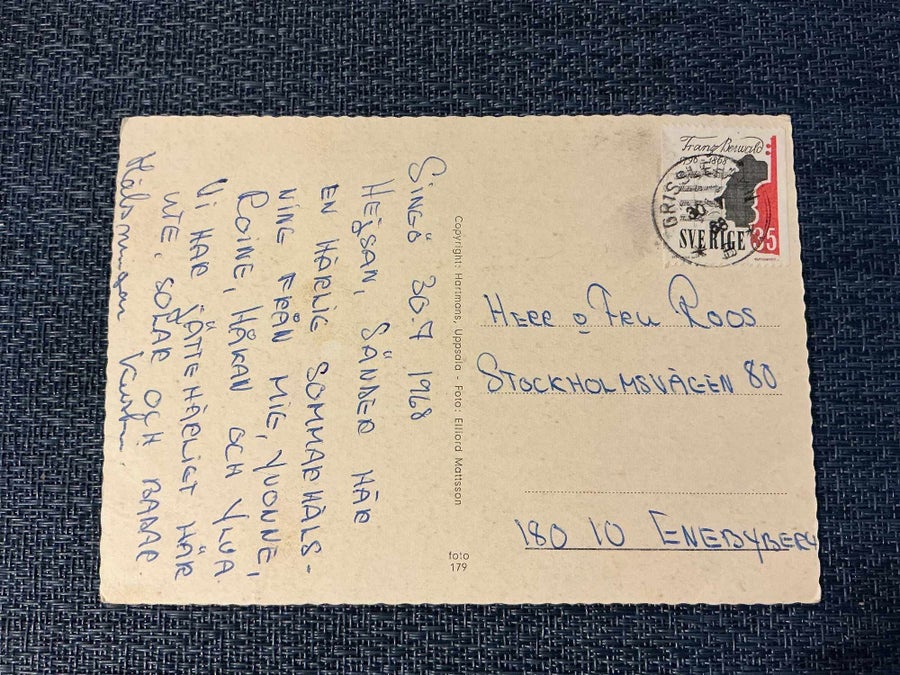 Singö 30.7 1968
HEJSAN, SÄNDER HÄR
EN HÄRLIG SOMMARHÄLS-
NING FRÅN MIG, YVONNE,
ROINE, HÅKAN OCH YLVA
VI HAR JÄTTEHÄRLIGT HÄR
UTE, SOLAR OCH BADAR
Hälsningar
Copyright: Hartmans, Uppsala - Foto: Elliord Mattsson
foto
179
Franz Berwald
1796-1868
SVERIGE 35
30
68
HERR o FRU ROOS
STOCKHOLMSVÄGEN 80
180 10 ENEBYBERG